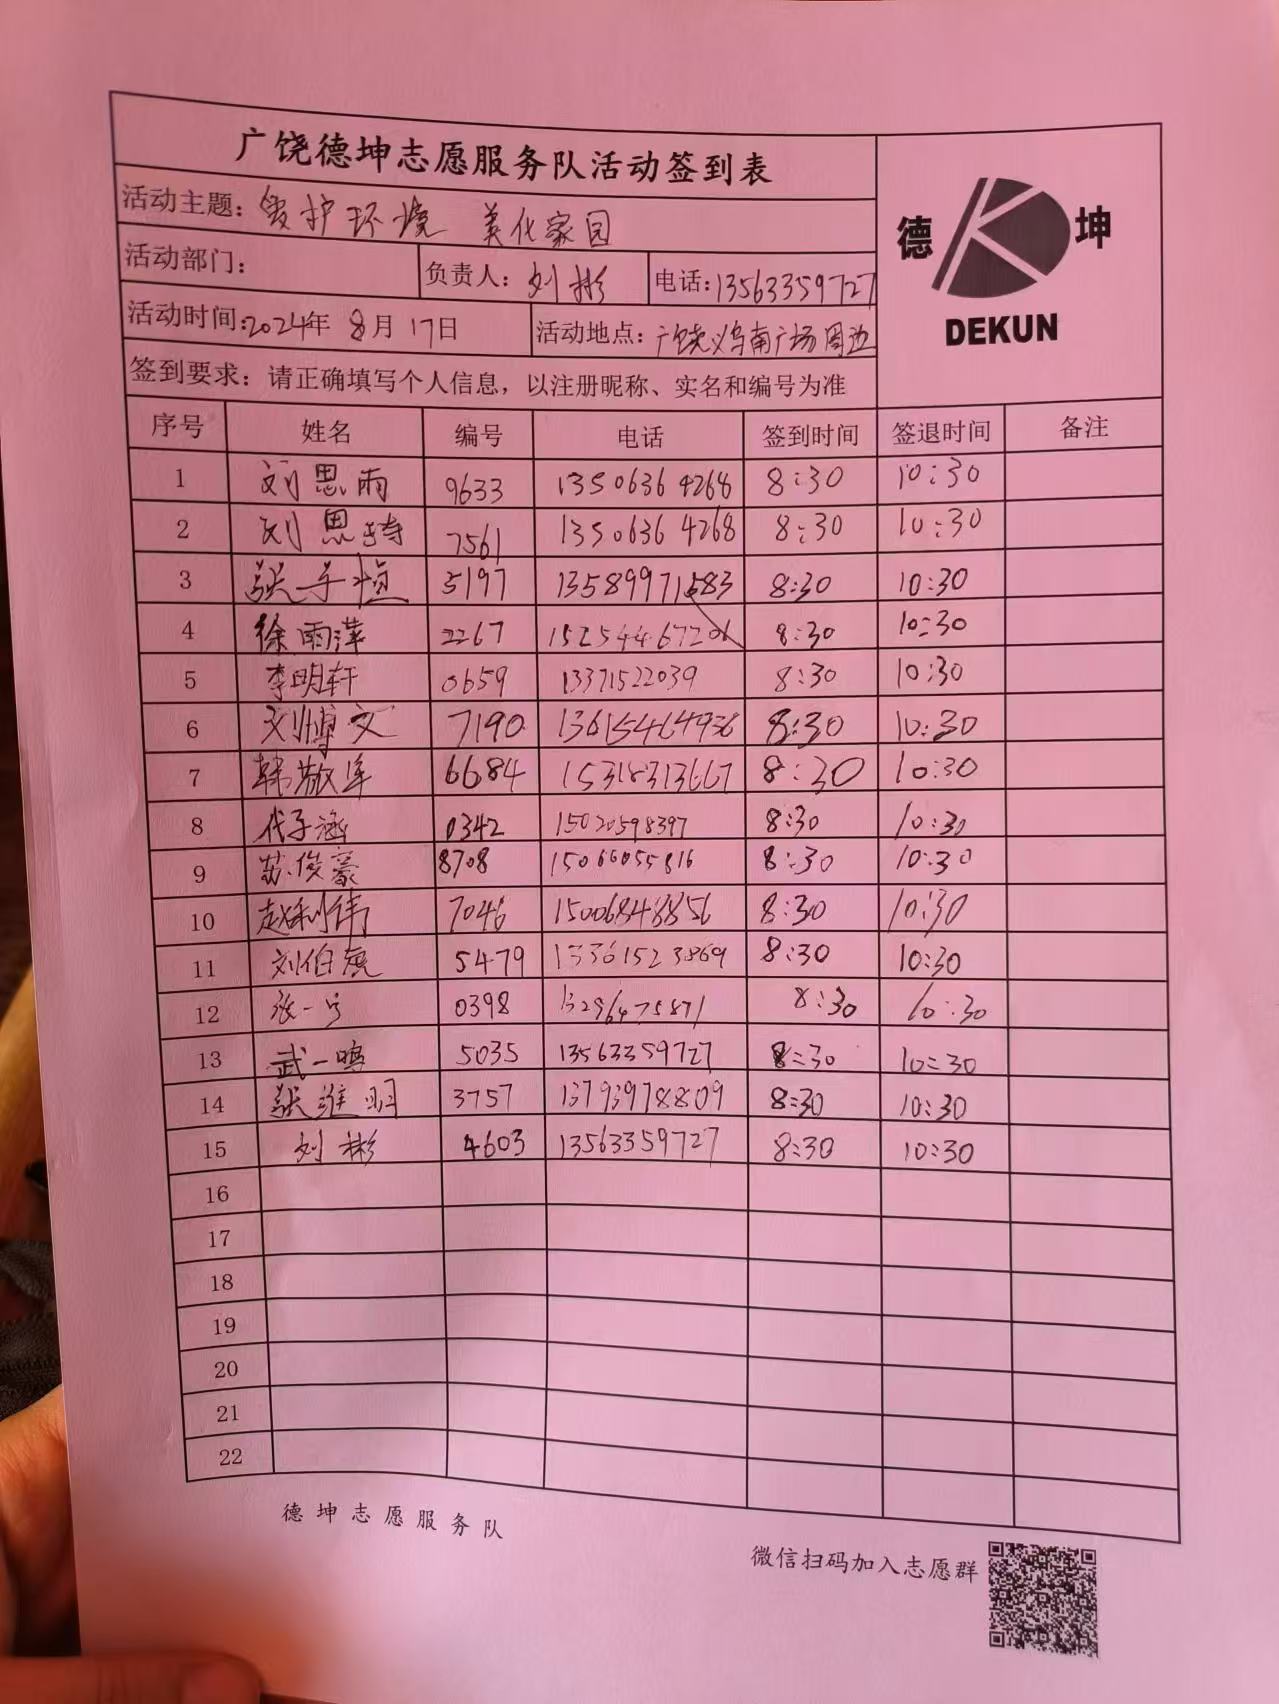 广饶德坤志愿服务队活动签到表
德 坤
DEKUN
活动主题：爱护环境 美化家园
活动部门： 负责人：刘彬 电话：13563359727
活动时间：2024年 8月 17日 活动地点：广饶义乌南广场周边
签到要求：请正确填写个人信息，以注册昵称、实名和编号为准
序号 姓名 编号 电话 签到时间 签退时间 备注
1 刘思雨 9633 13506364268 8:30 10:30
2 刘思琦 7561 13506364268 8:30 10:30
3 张子恒 5197 13589971583 8:30 10:30
4 徐雨萍 2267 15254467206 8:30 10:30
5 李明轩 0659 13371522039 8:30 10:30
6 刘博文 7190 13615464936 8:30 10:30
7 韩敬 6684 15318313667 8:30 10:30
8 代子涵 0342 15020598397 8:30 10:30
9 苏俊豪 8708 15066055816 8:30 10:30
10 赵利伟 7046 15006848856 8:30 10:30
11 刘伯 5479 13361523869 8:30 10:30
12 张一 0398 13296475871 8:30 10:30
13 武一鸣 5035 13563359727 8:30 10:30
14 张维 3757 13793978809 8:30 10:30
15 刘彬 4603 13563359727 8:30 10:30
16
17
18
19
20
21
22
德坤志愿服务队
微信扫码加入志愿群